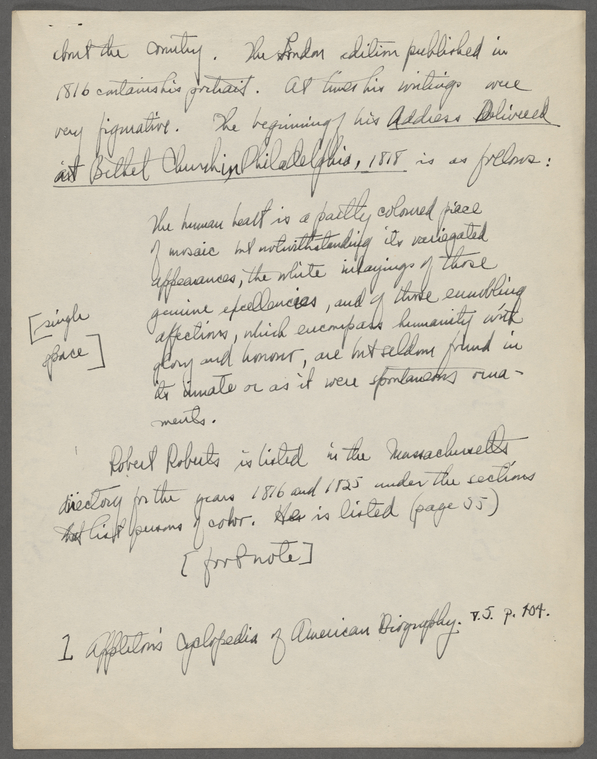 about the country. The London edition published in
1816 contains his portrait. At times his writings were
very figurative. The beginning of his Address Delivered
at Bethel Church in Philadelphia, 1818 is as follows:
The human heart is a partly coloured piece
of mosaic but notwithstanding its variegated
appearances, the white inlayings of those
genuine excellencies, and of those ennobling
affections, which encompass humanity with
glory and honour, are but seldom found in
its innate or as it were spontaneous orna-
ments.
[single
space]
Robert Roberts is listed in the Massachusetts
directory for the years 1816 and 1825 under the sections
that list persons of color. He is listed (page 55)
[footnote]
1 Appleton's Cyclopedia of American Biography. v.5. p. 404.